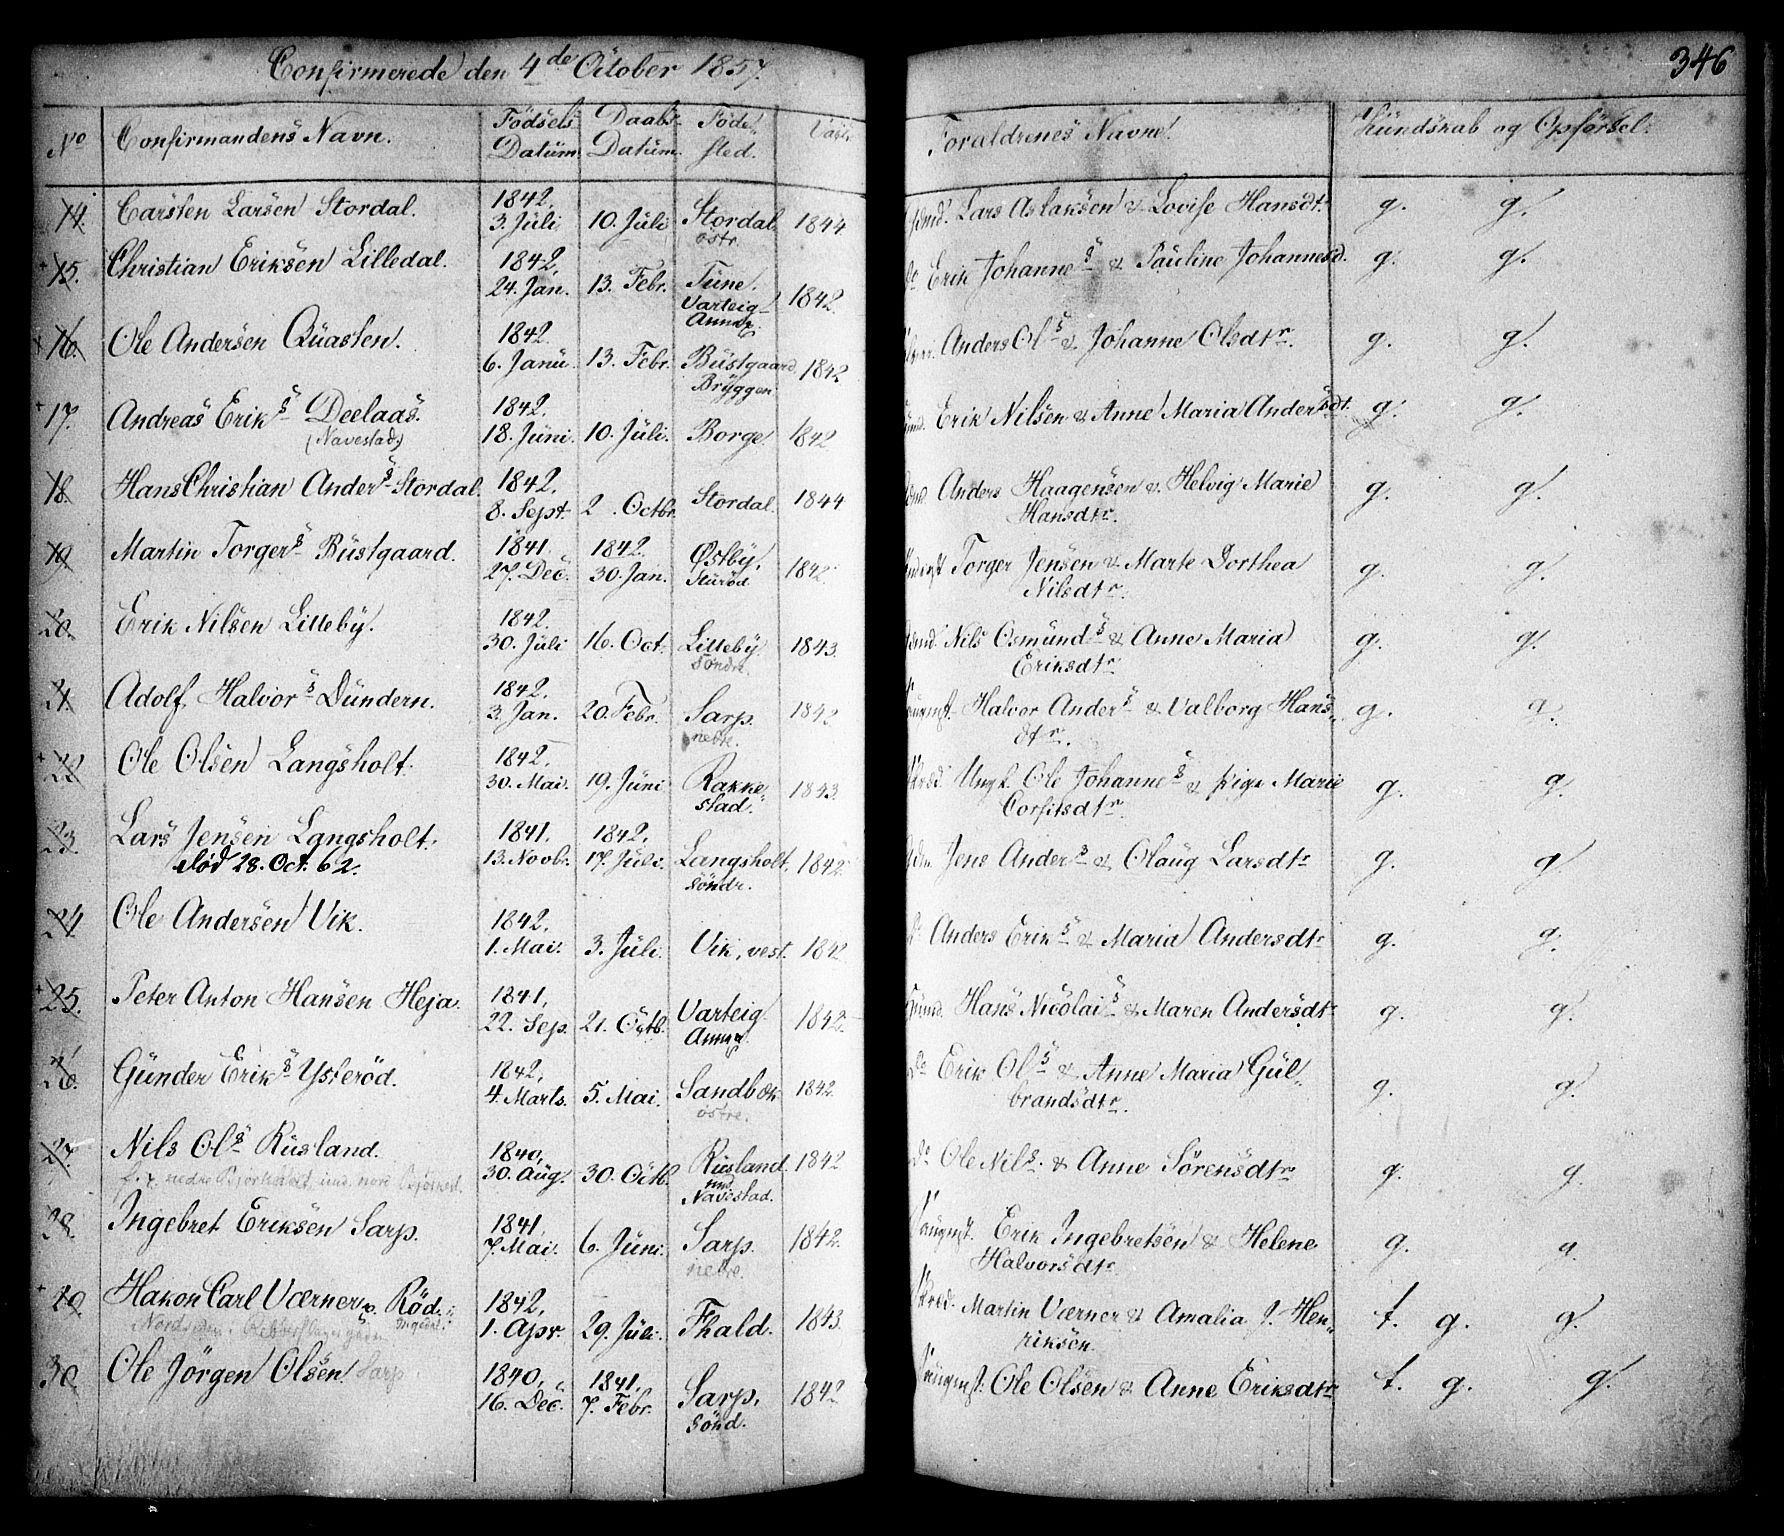 346
Confirmerede den 4de October 1857.
No Confirmandens Navn. Födsels Datüm. Daabs Datüm. Föde sted. Forældrenes Navne. Kündskab og Opförsel.
14. Carsten Larsen Stordal. 1842. 3. Jüli 10. Jüli Stordal östr. 1844 Lars Aslaksen & Lovise Hansdtr. g. g.
15. Christian Eriksen Lilledal. 1842. 24. Jan. 13. Febr. Tüne. Varteig Annex. 1842. do Erik Johannes & Pauline Johannesd. g. g.
16. Ole Andersen Qüasten. 1842. 6. Janü. 13. Febr. Büstgaard Bryggen 1842 Anders Ols & Johanne Olsdtr. g. g.
17. Andreas Eriks Deelaas. (Navestad) 1842. 18. Jüni. 10. Jüli. Borge. 1842 Erik Nilsen & Anne Maria Andersdt. g. g.
18. Hans Christian Anders Stordal. 1842. 8. Sept. 2. Octbr. Stordal. 1844 Anders Haagensen & Helvig Marie Hansdtr. g. g.
19. Martin Torgers Büstgaard. 1841. 27. Dec. 1842. 30. Jan. Østby, 1842. Torger Jensen & Marte Dorthea Nilsdtr. g. g.
20. Erik Nilsen Litleby. 1842. 30. Jüli 16. Oct. Litleby. Söndre. 1843. Nils Osmünds & Anne Maria Eriksdtr. g. g.
21. Adolf Halvors Dündern. 1842. 3. Jan. 20. Febr. Sarp. nedre. 1842 Halvor Anders & Valborg Hansdtr. g. g.
22 Ole Olsen Langsholt. 1842. 30. Mai. 19. Jüni Rakkestad. 1843. Ungk. Ole Johannes & Pige Marie Corfitsdtr. g. g.
23. Lars Jensen Langsholt. död 28. Oct. 62. 1841. 13. Novbr. 1842. 17. Jüli. Langsholt, söndr. 1842. Jens Anders & Olaug Larsdtr g. g
24. Ole Andersen Vik. 1842. 1. Mai. 3. Jüli. Vik, vest. 1842 Anders Eriks & Maria Andersdtr g. g.
25. Peter Anton Hansen Heja. 1841. 22. Sep. 21. Octb. Varteig Annex. 1842. Hans Nicolais & Maren Andersdtr g. g.
26. Günder Eriks Ysteröd. 1842. 4. Marts. 5. Mai. Sandbæk östre. 1842. do Erik Ols & Anne Maria Gülbrandsdtr. g. g.
27. Nils Ols Rüsland. 1840. 30. Aug. 30. Octb. Rüsland und. Navestad. 1842 do Ole Nils. & Anne Sörensdtr g. g.
28. Ingebret Eriksen Sarp. 1841. 7. Mai. 6. Jüni. Sarp. nedre. 1842. Erik Ingebretsen & Helene Halvorsdtr g. g.
29 Hakon Carl Værner Röd. 1842. 1. Apr. 29. Jüli. Fhald. 1843. Martin Værner & Amalia J. Henriksen. t. g. g.
30. Ole Jörgen Olsen Sarp 1840. 16. Dec. 1841. 7. Febr. Sarp, sönd. 1842 Ole Olsen & Anne Eriksdtr t. g. g.